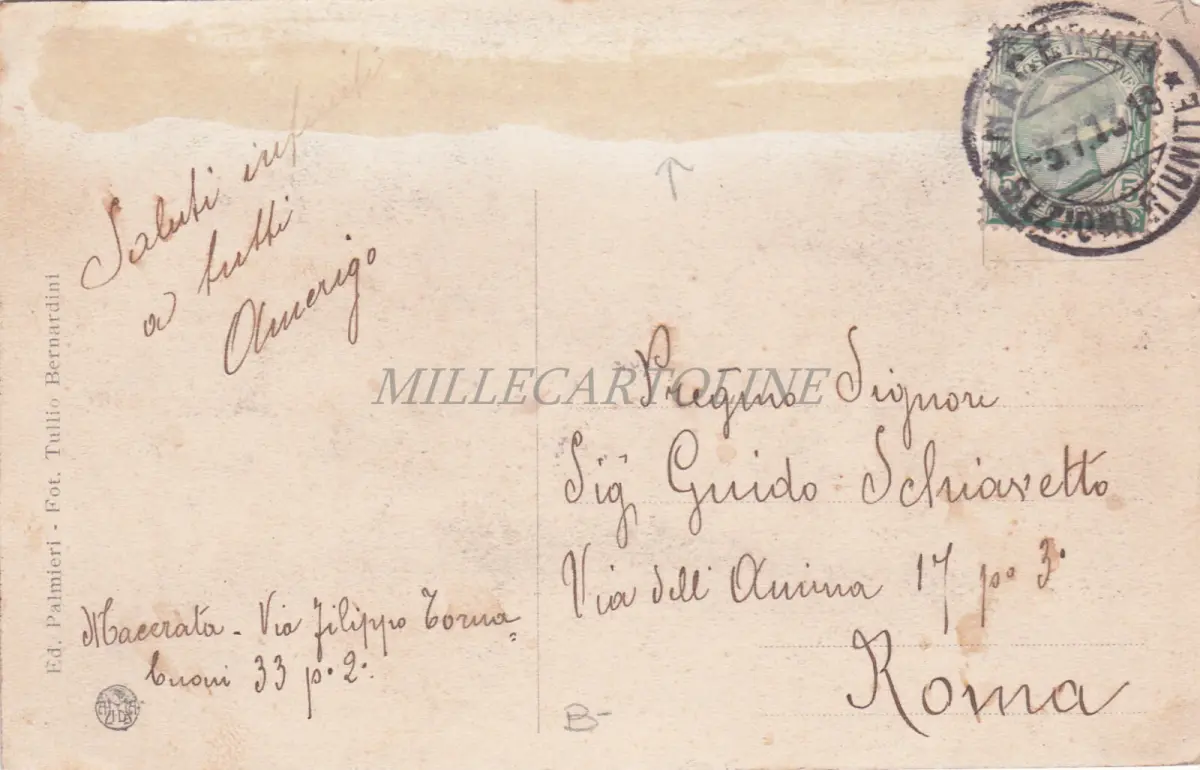 Saluti infiniti
a tutti
Amerigo
Macerata - Via Filippo Torna=
buoni 33 p.º 2.º
Ed. Palmieri - Fot. Tullio Bernardini
MACERATA
5.7.13.18
SEZIONI RIUNITE
5
Pregmo Signore
Sig. Guido Schiavetto
Via dell'Anima 17 pº 3º
Roma
B-
MILLECARTOLINE